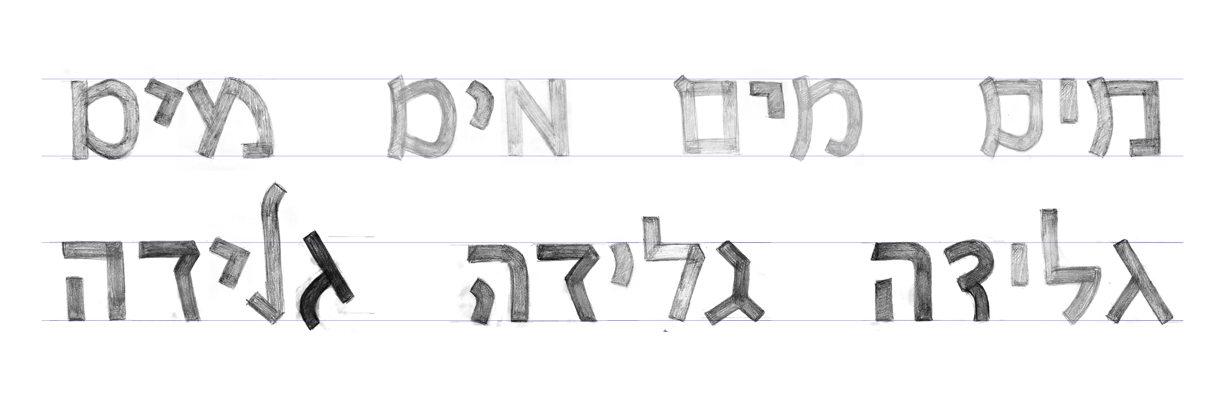 מים מים מים מים
גלידה גלידה גלידה